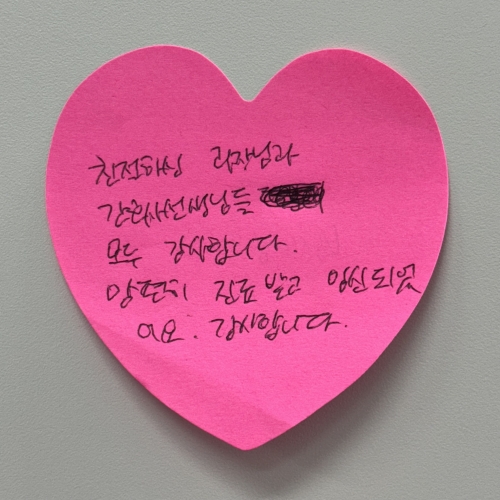 친절하신 과장님과
간호사선생님들
모두 감사합니다.
맘편히 진료받고 임신되었
어요. 감사합니다.